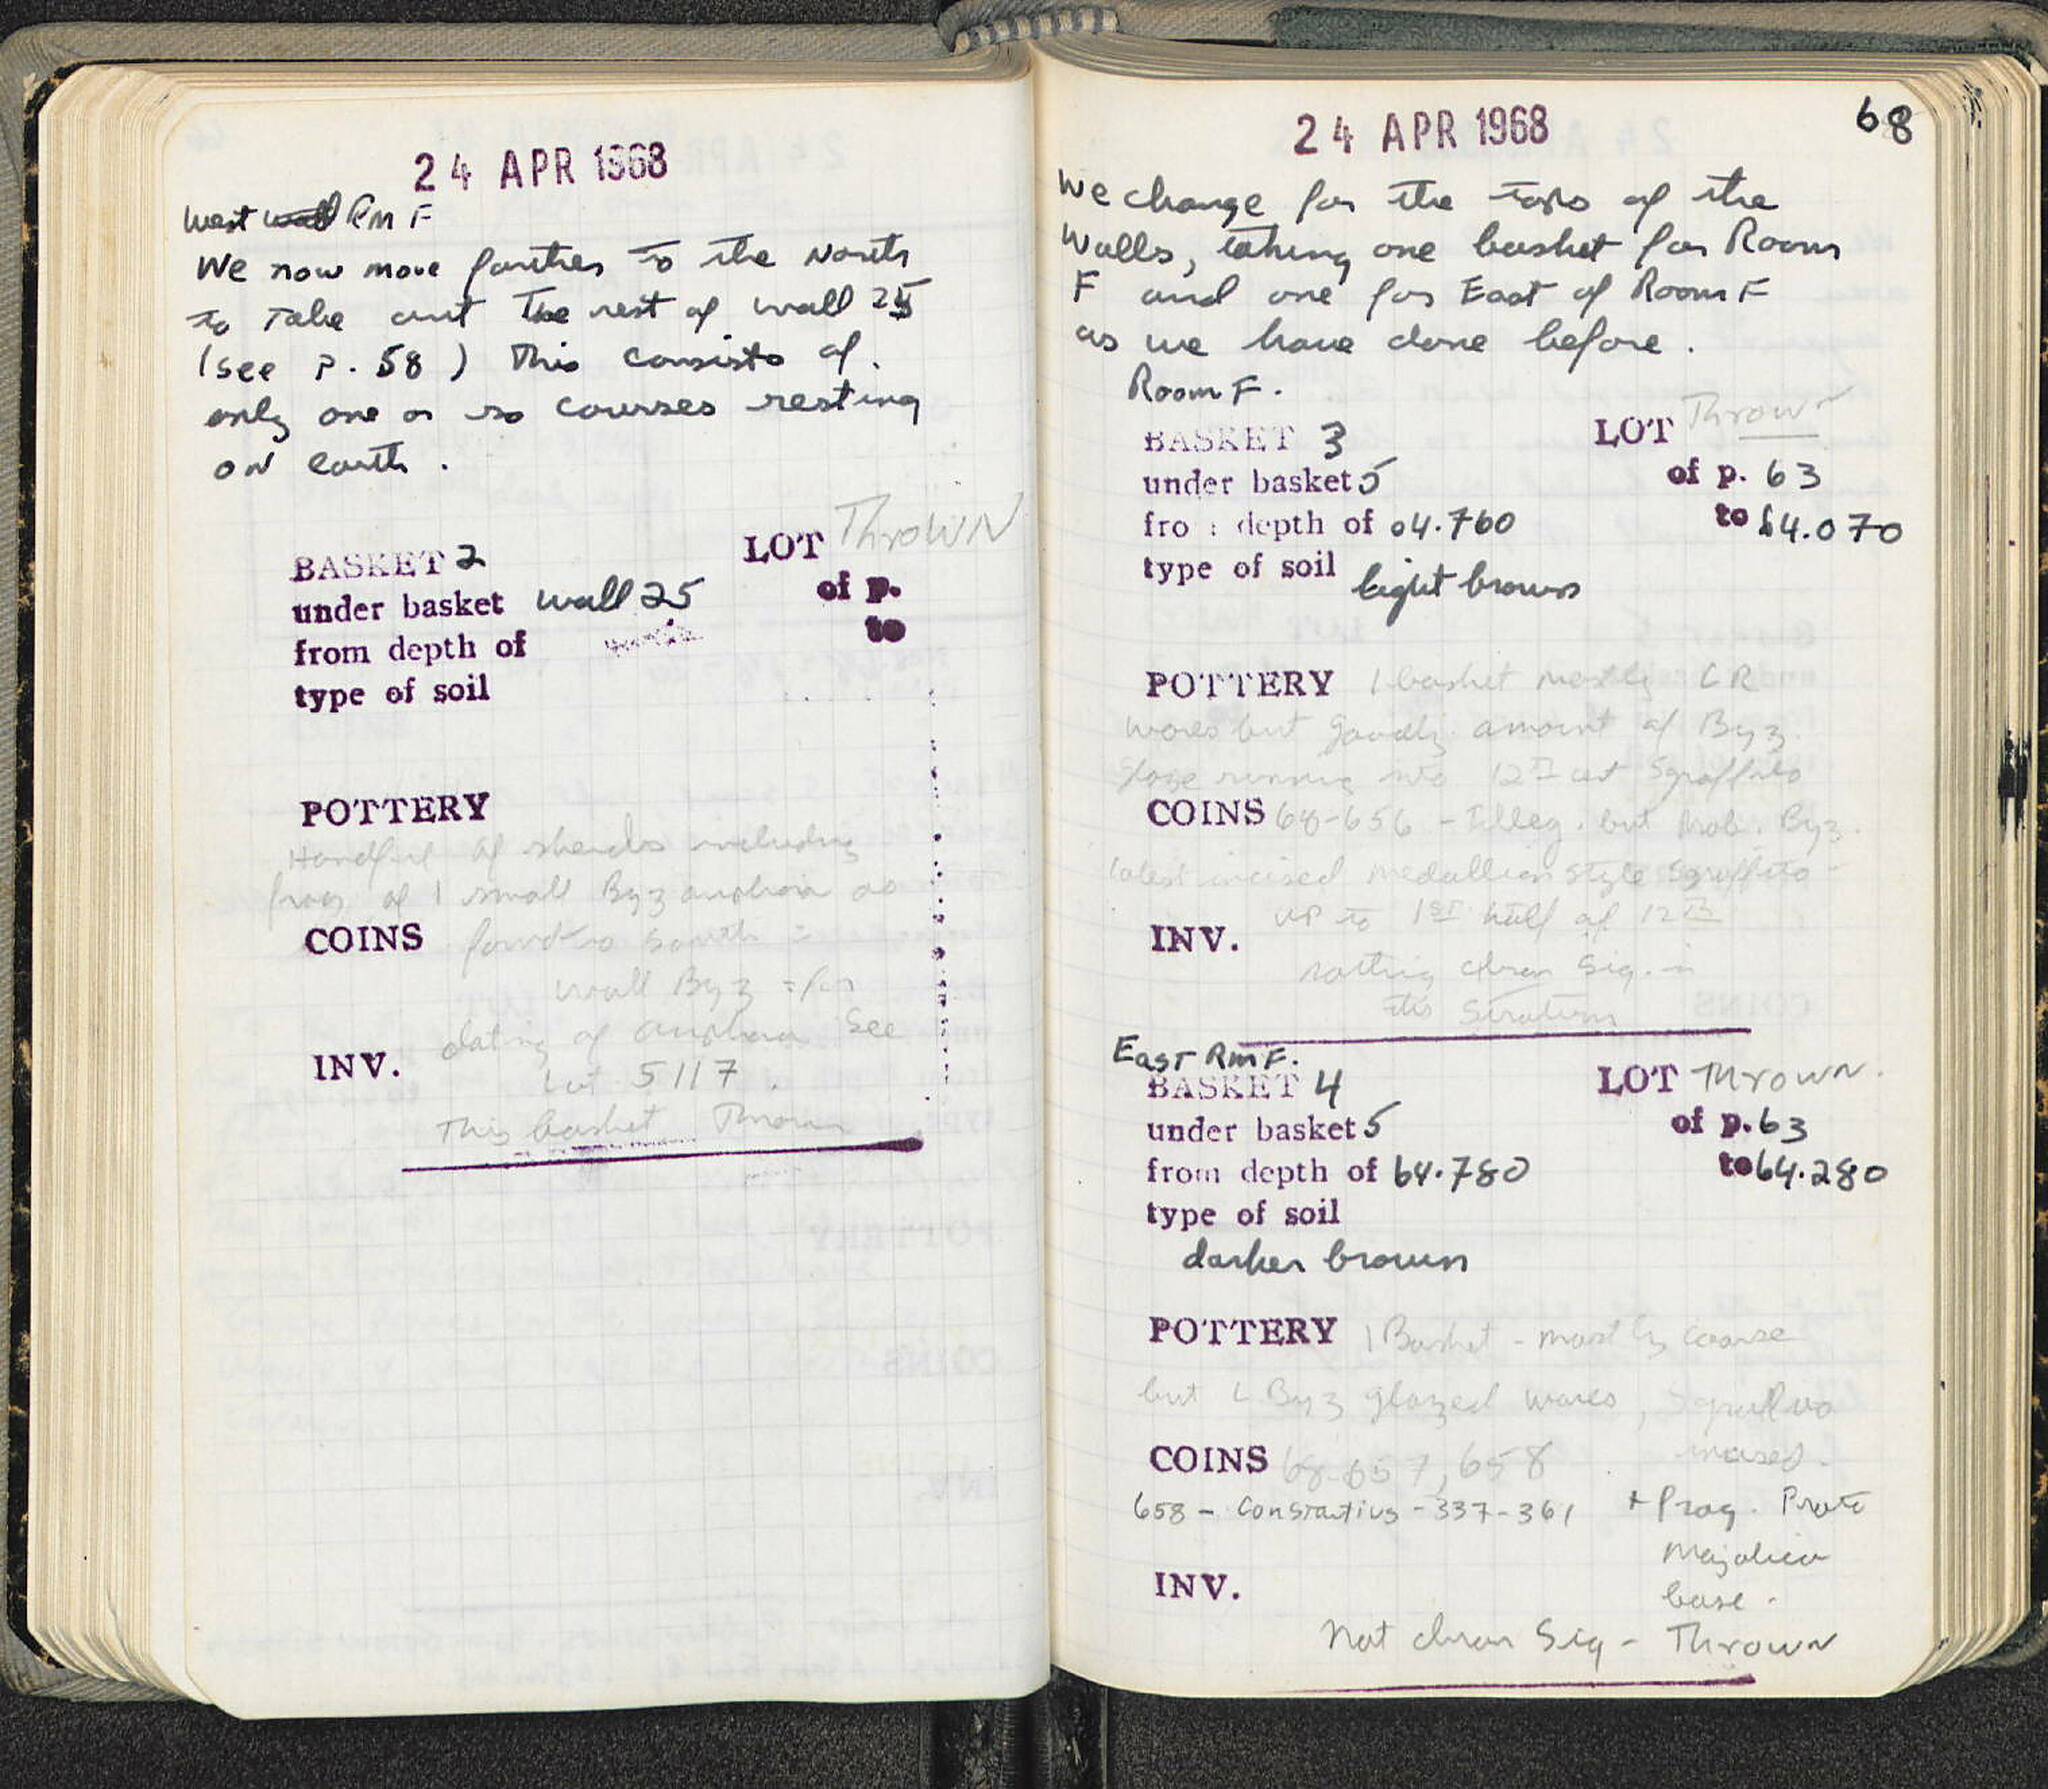 24 APR 1968
West Rm F
We now move further to the North
to take out the rest of wall 25
(see P. 58) This consists of
only one or so courses resting
on earth.
BASKET 2
LOT Thrown
under basket wall 25
of p.
from depth of
to
type of soil
POTTERY
Handful of sherds including
frag of 1 small Byz amphora as
COINS found to south =
wall Byz = for
dating of amphora See
INV. Lot 5117.
This basket Thrown
24 APR 1968
68
We change for the tops of the
Walls, taking one basket for Room
F and one for East of Room F
as we have done before.
Room F.
BASKET 3
LOT Thrown
under basket 5
of p. 63
from depth of 64.760
to 64.070
type of soil light brown
POTTERY 1 basket mostly LR
wares but goodly amount of Byz.
glaze running into 12th cent Sgraffito
COINS 68-656 - Illeg. but Prob. Byz.
latest incised medallion style Sgraffito -
up to 1st half of 12th
INV.
nothing chron sig. in
this stratum
East Rm F.
BASKET 4
LOT Thrown.
under basket 5
of p. 63
from depth of 64.780
to 64.280
type of soil
darker brown
POTTERY 1 Basket - mostly coarse
but L Byz glazed wares, Sgraffito
incised.
COINS 68-657, 658
658 - Constantius - 337-361
+ Frag. Proto
Majolica
base.
INV.
Not chron Sig - Thrown